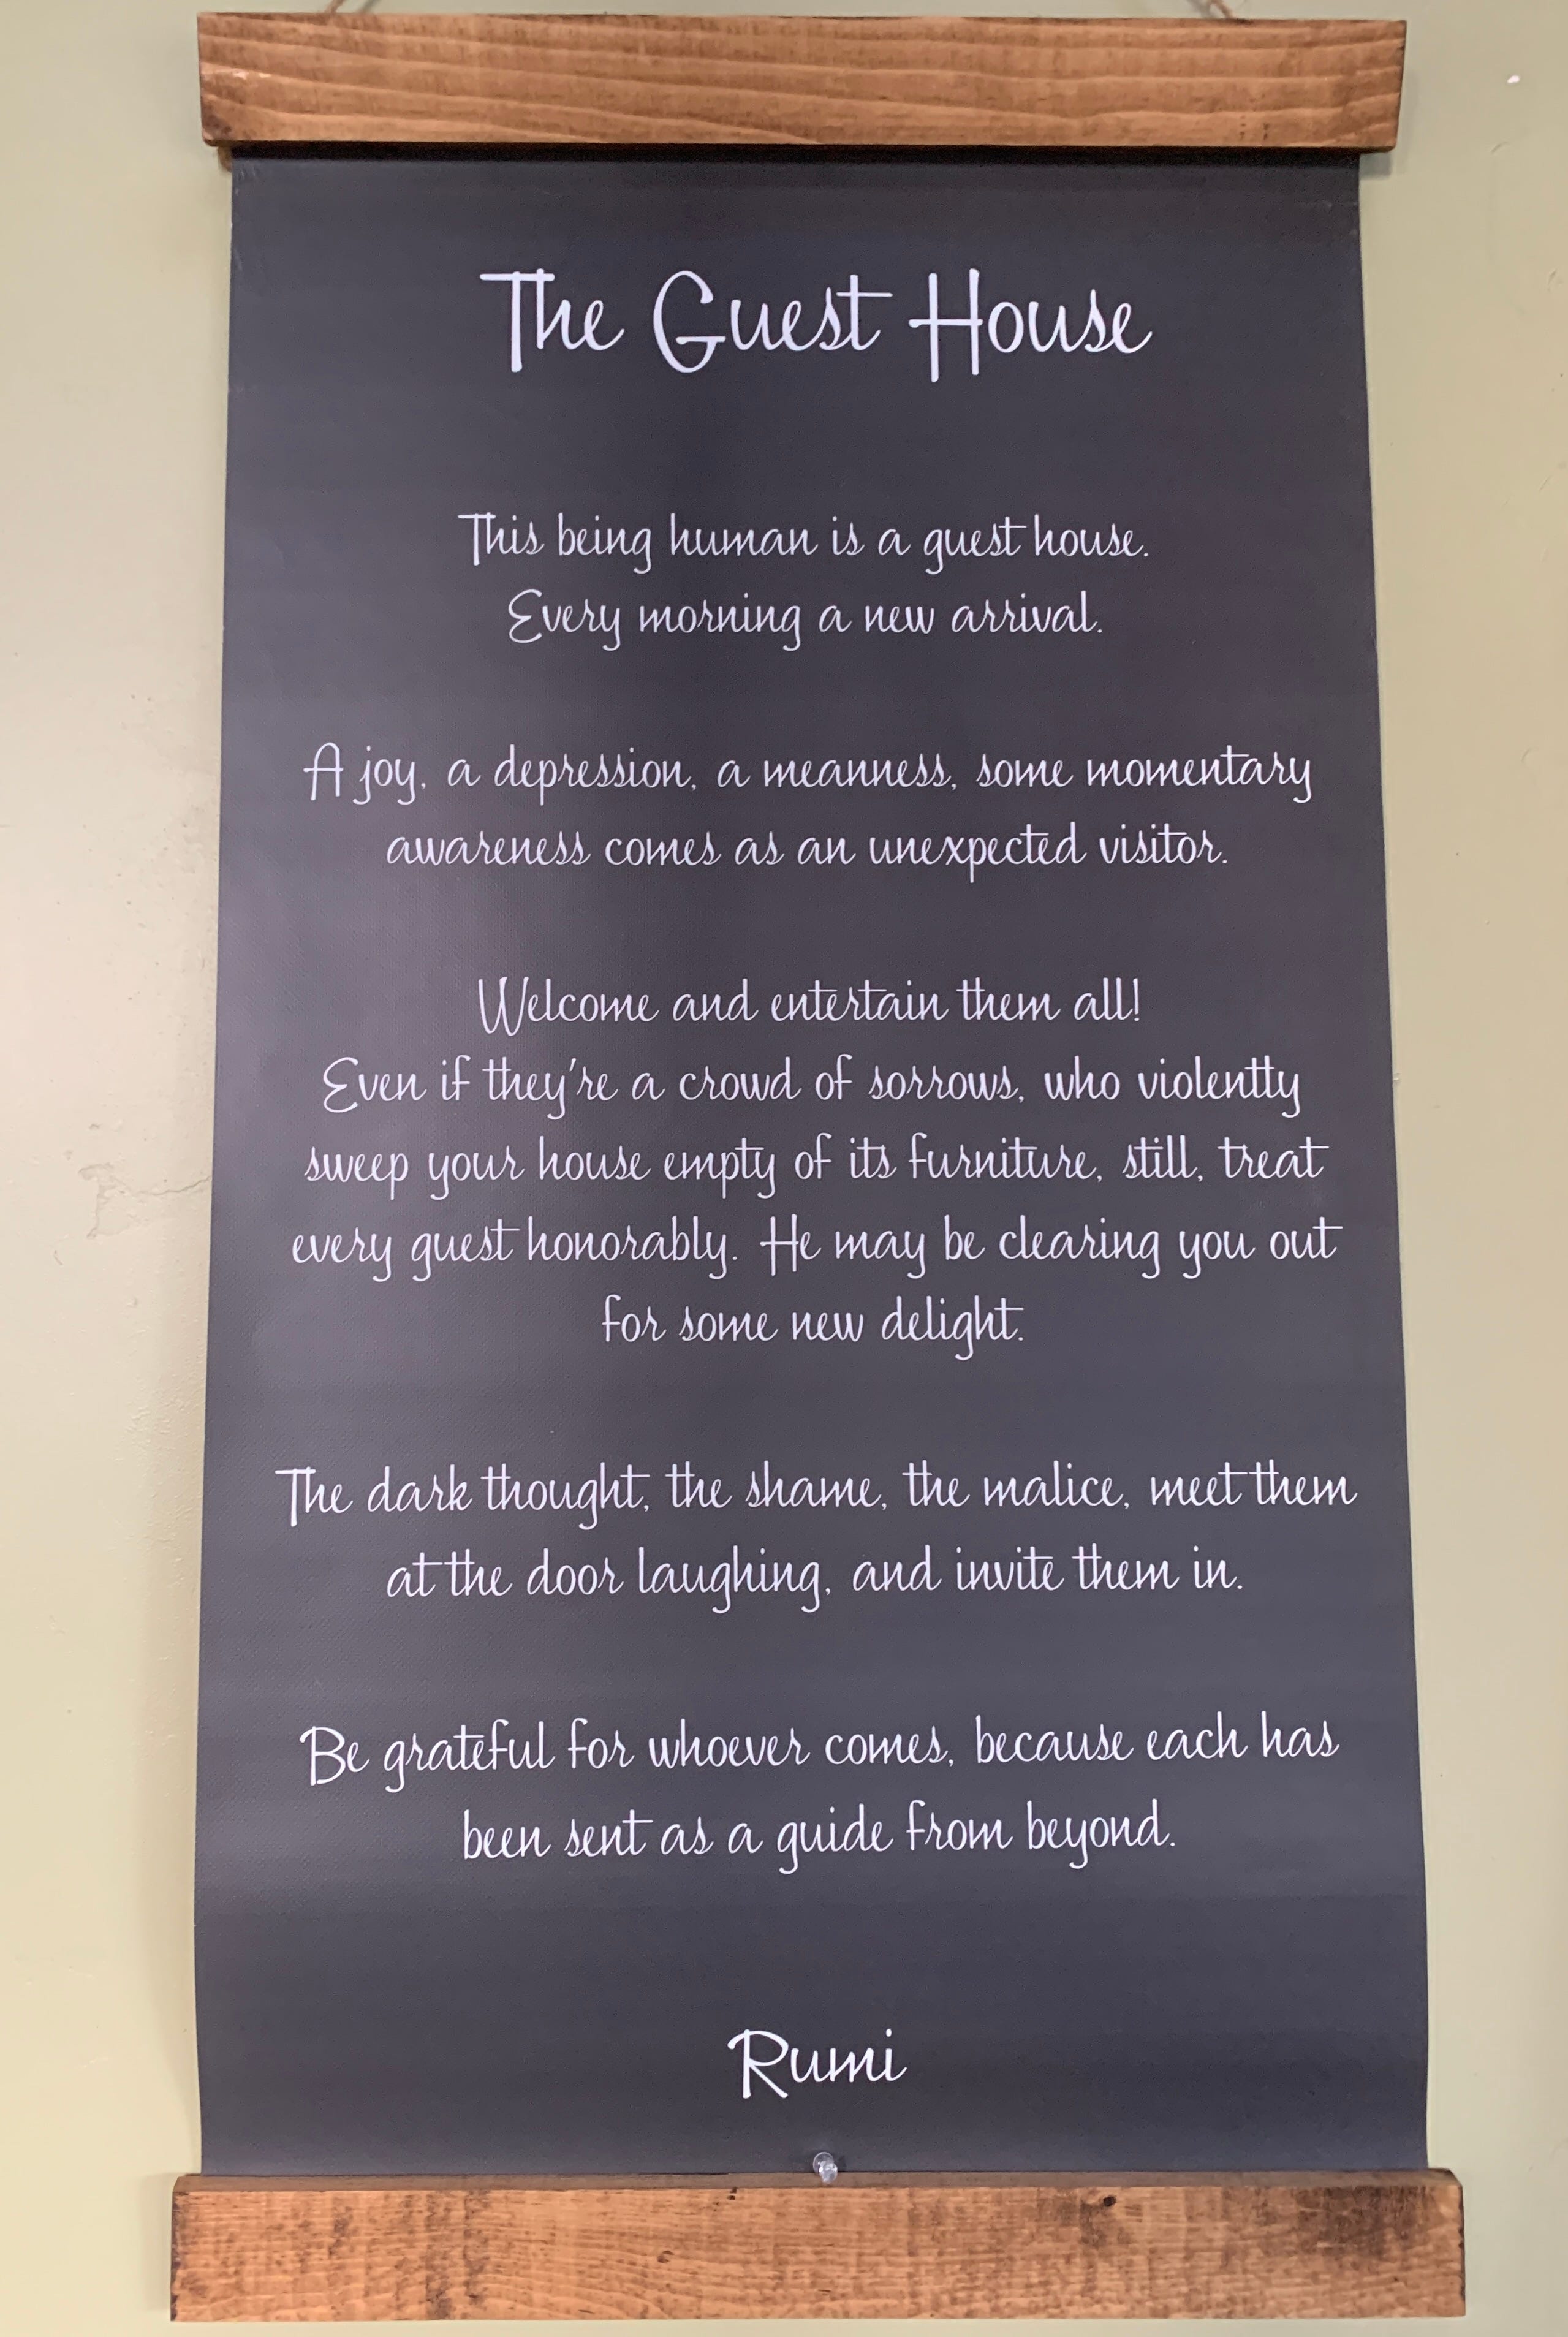 The Guest House
This being human is a guest house.
Every morning a new arrival.
A joy, a depression, a meanness, some momentary
awareness comes as an unexpected visitor.
Welcome and entertain them all!
Even if they're a crowd of sorrows, who violently
sweep your house empty of its furniture, still, treat
every guest honorably. He may be clearing you out
for some new delight.
The dark thought, the shame, the malice, meet them
at the door laughing, and invite them in.
Be grateful for whoever comes, because each has
been sent as a guide from beyond.
Rumi